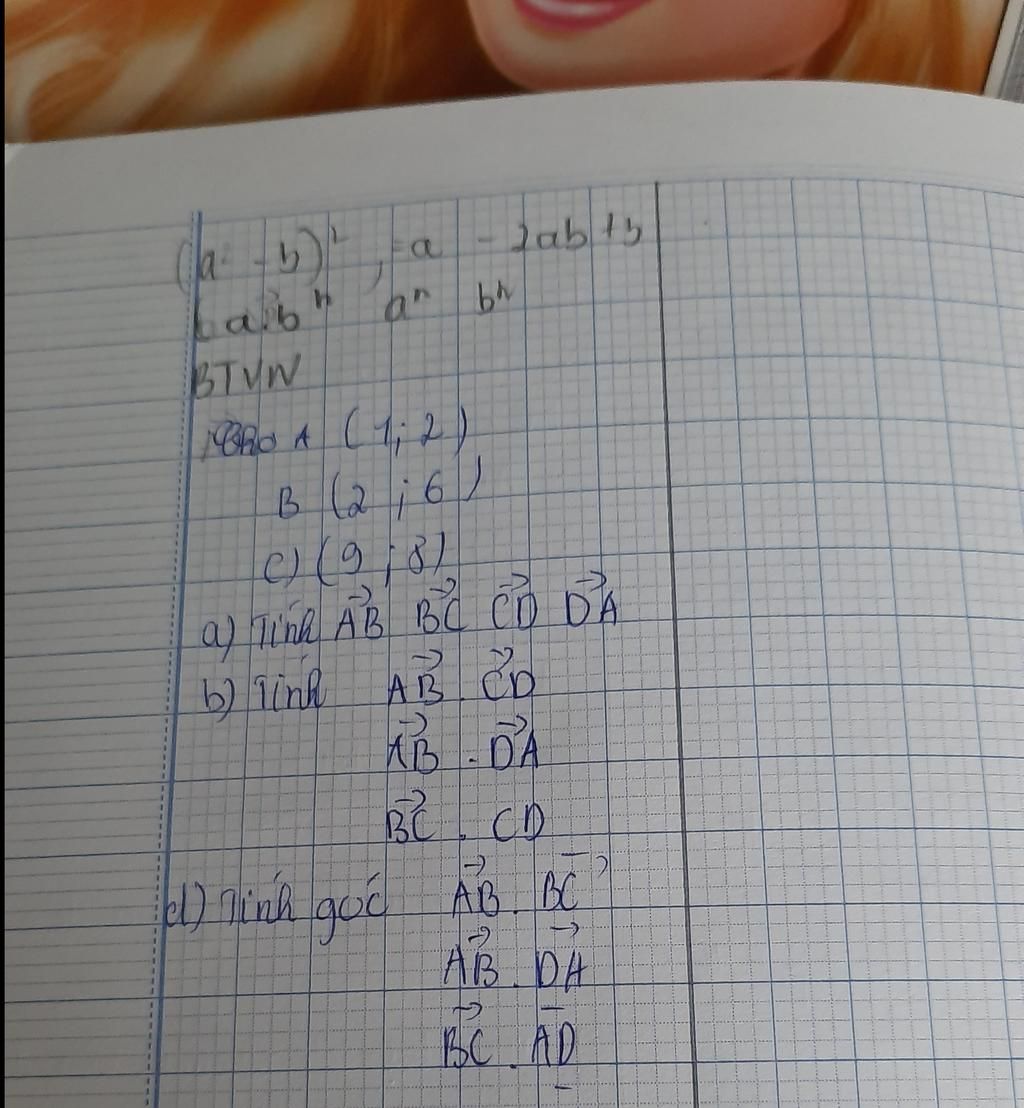 (a - b)², = a - 2ab + b
(a.b)ⁿ aⁿ bⁿ
BTVN
A (1; 2)
B (2; 6)
C) (9; 8)
a) Tính AB→ BC→ CD→ DA→
b) Tính AB→ . CD→
AB→ . DA→
BC→ . CD
d) Tính góc AB→ . BC→
AB→ . DA→
BC→ . AD